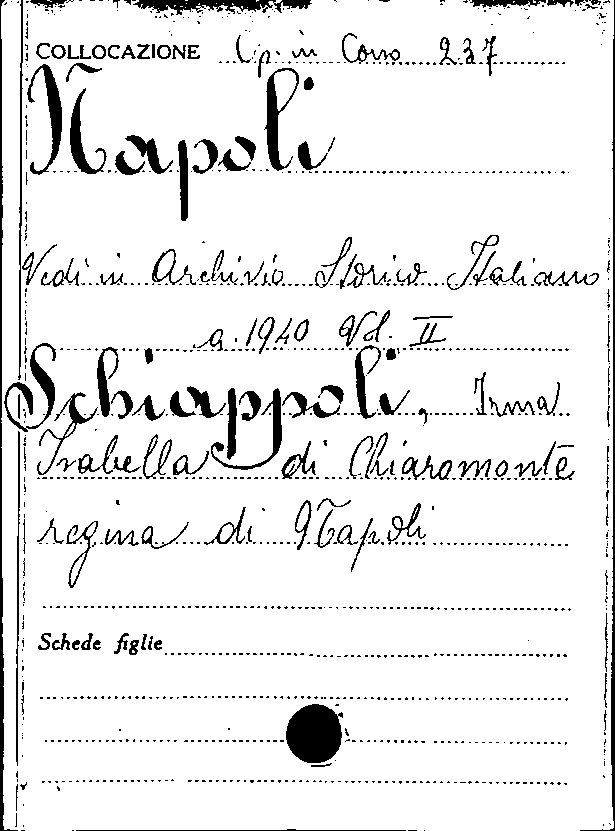 COLLOCAZIONE Op. in Corso 237
Napoli
Vedi in Archivio Storico Italiano
a. 1940 Vol. II
Schiappoli, Irma
Isabella di Chiaromonte
regina di Napoli
Schede figlie